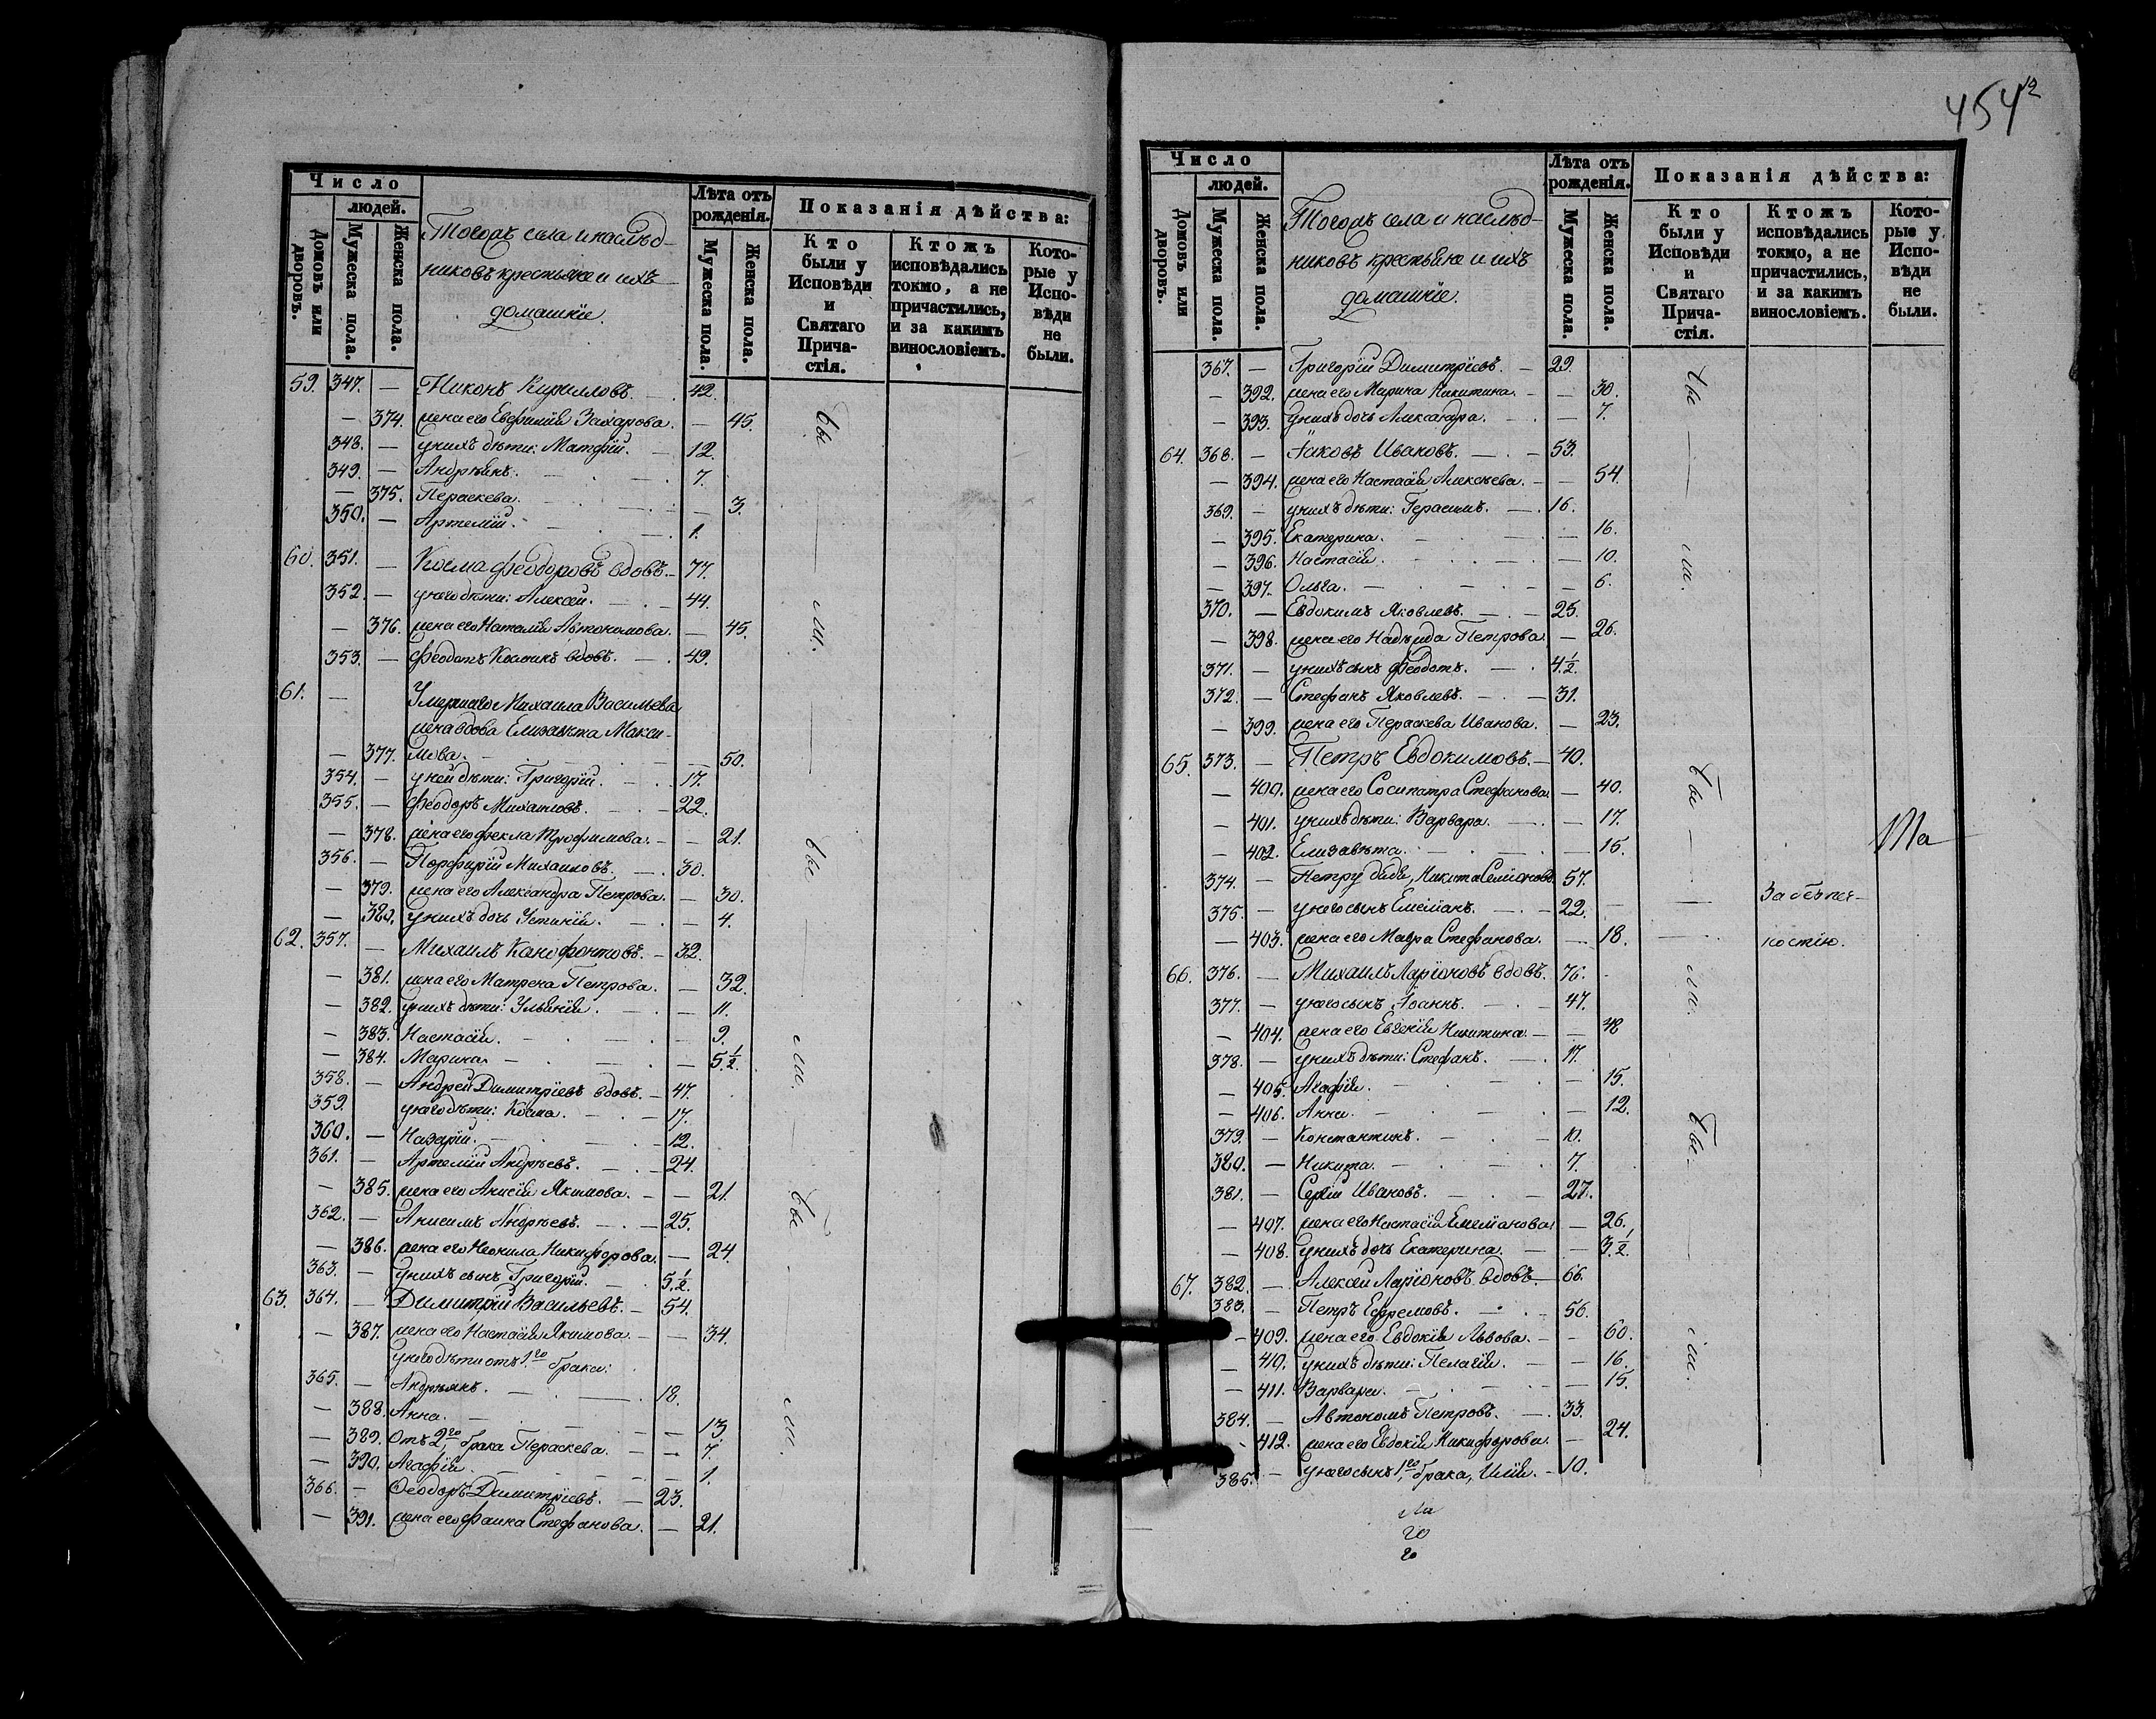 454
Число
людей.
Домовъ или дворовъ.
Мужеска пола.
Женска пола.
Тогожъ села и наслѣд-
никовъ крестьяне и ихъ
домашніе.
Лѣта отъ рожденія.
Мужеска пола.
Женска пола.
Показанія дѣйства:
Кто были у Исповѣди и Святаго Прича-стія.
Ктожъ исповѣдались токмо, а не причастились, и за какимъ винословіемъ.
Кото-рые у Испо-вѣди не были.
59. 347. — Никонъ Кирилловъ. 42.
— 374. жена его Евфимія Захарова. — 45.
348. — у нихъ дѣти: Матфій. 12.
349. — Андрѣянъ. 7.
— 375. Параскева. — 3.
350. — Артемій. 1.
60. 351. — Косма Феодоровъ вдовъ. 77.
352. — у него дѣти: Алексѣй. 44.
— 376. жена его Наталія Автономова. — 45.
353. — Феодотъ Косминъ вдовъ. 49.
61. — Умершаго Михаила Васильева
жена вдова Елизавета Макси-
— 377. мова. — 50.
354. — у ней дѣти: Григорій. 17.
355. — Феодоръ Михаиловъ. 22.
— 378. жена его Фекла Трофимова. — 21.
356. — Порфирій Михаиловъ. 30.
— 379. жена его Александра Петрова. — 30.
— 380. у нихъ дочь Устинія. — 4.
62. 357. — Михаилъ Канофонтовъ. 32.
— 381. жена его Матрена Петрова. — 32.
— 382. у нихъ дѣти: Ульянія. — 11.
— 383. Настасія. — 9.
— 384. Марина. — 5½.
358. — Андрей Димитріевъ вдовъ. 47.
359. у него дѣти: Косма. 17.
360. — Назарій. 12.
361. — Артемій Андрѣевъ. 24.
— 385. жена его Анисія Якимова. — 21.
362. — Анисимъ Андрѣевъ. 25.
— 386. жена его Неонила Никифорова. — 24.
363. — у нихъ сынъ Григорій. 5½.
63. 364. — Димитрій Васильевъ. 54.
— 387. жена его Настасія Якимова. — 34.
у него дѣти отъ 1го брака:
365. — Андрѣянъ. 18.
— 388. Анна. — 13.
— 389. Отъ 2го брака Параскева. — 7.
— 390. Агафія. — 1.
366. — Феодоръ Димитріевъ. 23.
— 391. жена его Фаина Стефанова. — 21.
бы — ли. — бы — ли. — бы — ли.
Число
людей.
Домовъ или дворовъ.
Мужеска пола.
Женска пола.
Тогожъ села и наслѣд-
никовъ крестьяне и ихъ
домашніе.
Лѣта отъ рожденія.
Мужеска пола.
Женска пола.
Показанія дѣйства:
Кто были у Исповѣди и Святаго Прича-стія.
Ктожъ исповѣдались токмо, а не причастились, и за какимъ винословіемъ.
Кото-рые у Испо-вѣди не были.
367. — Григорій Димитріевъ. 29.
— 392. жена его Марина Никитина. — 30.
— 393. у нихъ дочь Александра. — 7.
64. 368. — Іаковъ Ивановъ. 53.
— 394. жена его Настасія Алексѣева. — 54.
369. — у нихъ дѣти: Герасимъ. 16.
— 395. Екатерина. — 16.
— 396. Настасія. — 10.
— 397. Ольга. — 6.
370. — Евдокимъ Яковлевъ. 25.
— 398. жена его Надежда Петрова. — 26.
371. — у нихъ сынъ Феодотъ. 4½.
372. — Стефанъ Яковлевъ. 31.
— 399. жена его Параскева Иванова. — 23.
65. 373. — Петръ Евдокимовъ. 40.
— 400. жена его Сосипатра Стефанова. — 40.
— 401. у нихъ дѣти: Варвара. — 17.
— 402. Елизавета. — 15.
374. — Петру дядя, Никита Семіоновъ. 57.
375. — у него сынъ Емеліанъ. 22.
— 403. жена его Мавра Стефанова. — 18.
66. 376. — Михаилъ Ларіоновъ вдовъ. 76.
377. — у него сынъ Іоаннъ. 47.
— 404. жена его Евгенія Никитина. — 48
378. — у нихъ дѣти: Стефанъ. 17.
— 405. Агафія. — 15.
— 406. Анна. — 12.
379. — Константинъ. 10.
380. — Никита. 7.
381. — Сергій Ивановъ. 27.
— 407. жена его Настасія Емеліанова. — 26.
— 408. у нихъ дочь Екатерина. — 3½.
67. 382. — Алексѣй Ларіоновъ вдовъ. 66.
383. — Петръ Ефремовъ. 56.
— 409. жена его Евдокія Львова. — 60.
— 410. у нихъ дѣти: Пелагія. — 16.
— 411. Варвара. — 15.
384. — Автономъ Петровъ. 33.
— 412. жена его Евдокія Никифорова. — 24.
385. — у него сынъ 1го брака, Илія. 10.
бы — ли. бы — ли. бы — ли.
За небреж-
ностію.